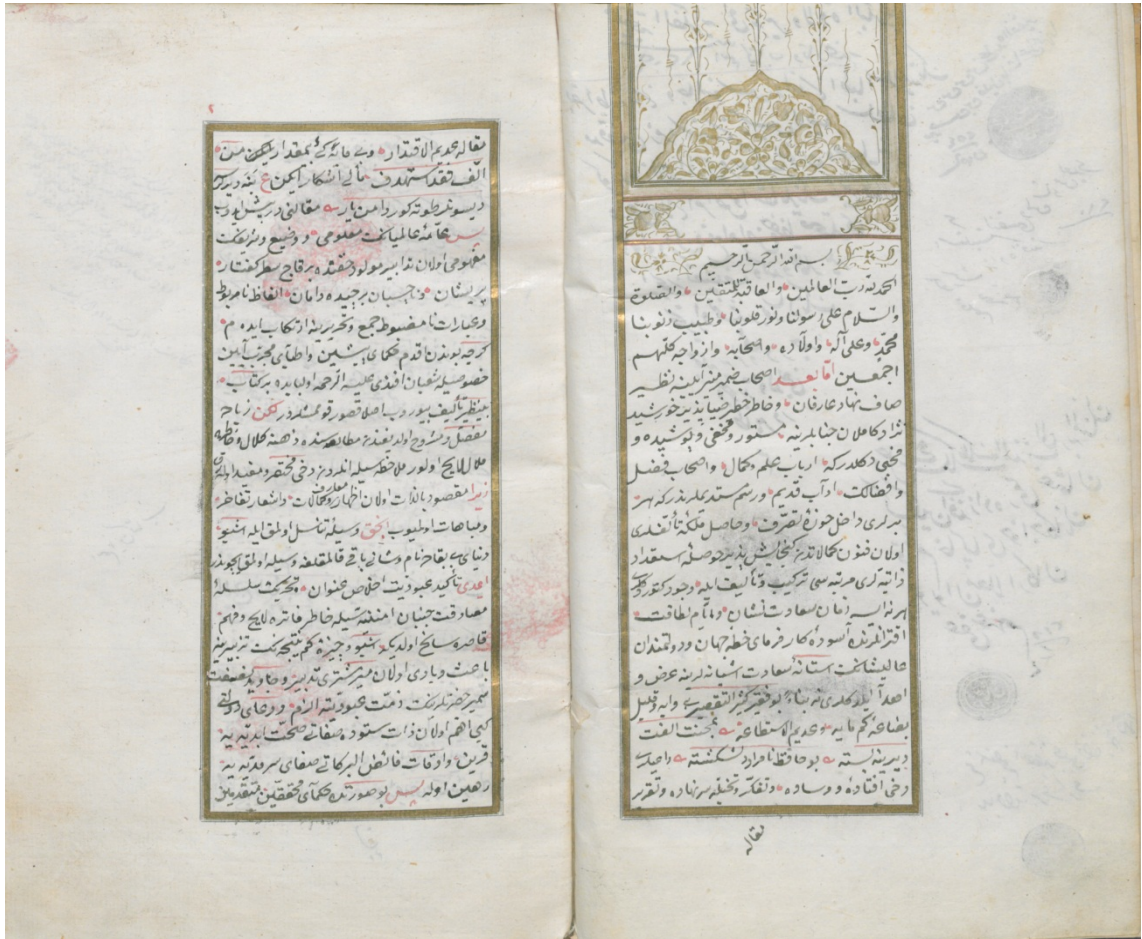 بسم الله الرحمن الرحيم
الحمد لله رب العالمين والعاقبة للمتقين والصلوة
والسلام على رسولنا ونور قلوبنا وطبيب ذنوبنا
محمد وعلى آله واولاده واصحابه وازواجه كلهم
اجمعين اما بعد اصحاب ضمير منير آيينه نظير
صاف نهاد عارفان وخاطر خطير ضيا پذير خورشيد
نژاد كاملان جنابلرينه مستور ومخفى وپوشيده و
محجبى دكلدركه ارباب علم وكمال واصحاب فضل
وافضالك آداب قديم ورسم مستديملريدركه هر
برلرى داخل حوزۀ تصرف وحاصل ملكۀ تألفلرى
اولان فنون كمالاتدن كنجايش پذير حوصلۀ استعداد
ذاتيه لرى مرتبه سى تركيب وتأليف ايله وجود كتوروب
هر نه ايسه زمان سعادت نشان وايام لطافت
اقترانلرنده آسوده كارفرماى خطۀ جهان ودولتمندان
عاليشانك آستانۀ سعادت آشيانه لرينه عرض و
اهدا ايله كلدى بناء بو فقير كثير التقصير وبه قليل
بضاعه كم مايه وعديم الاستطاعه محنت الفت
ديرينه بسته بو حافظ نامراد شكسته
دخى افتاده ووساده وتفكر وتخيله سر نهاده وتقرير
مقاله
٢
مقاله عديم الاقتدار
الف فقد استهدف
مقالنى درپيش ايدوب
پس عامۀ عالميانك معلومى ووضيع وشريفك
مفهومى اولان تدابير مولود حقنده بر قاچ سطر كفتار
پريشان وناچسبان برچيده دامان الفاظ نامربوط
وعبارات نامضبوط جمع وتحريرينه ارتكاب ايده م
كرچه بوندن اقدم حكماى پيشين واطباى مجرب آيين
خصوصيله شعبان افندى عليه الرحمه اولبابده بر كتاب
بينظير تأليف بيوروب اصلا قصور قومشلردر لكن زياده
مفصل ومشروح اولدیغندن مطالعه سنده ذهنه كلال وخاطره
ملال لايح اولور ملاحظه سيله انلردن دخى مختصر ومفيد
زيرا مقصود بالذات اولان اظهار معارف وكمالات واشعار تفاخر
ومباهات اوليوب بلكه وسيلۀ تناسل اولمق ايله اشبو
دنياى بى بقاده نام ونشانى باقى قالمقلغه وسيله اولمق ايچوندر
ايمدى تأكيد عبوديت اخلاص عنوان وتحريك سلسلۀ
مصادقت جنبان امنيتيله خاطر فاتره لايح وفهم
قاصره سانح اولديكه اشبو وجيزۀ كم نتيجه نك ترتيبنه
باعث وبادى اولان مير مشترى تدبير
سمير حضرتلرينك ذمت عبوديته الزم
كبى اهم اولان ذات ستوده صفاتى صحت ابديه يه
قرين واوقات فائض البركاتى صفاى سرمديه يه
رهين اوله پس بو صورتده حكماى محققين متقدمين